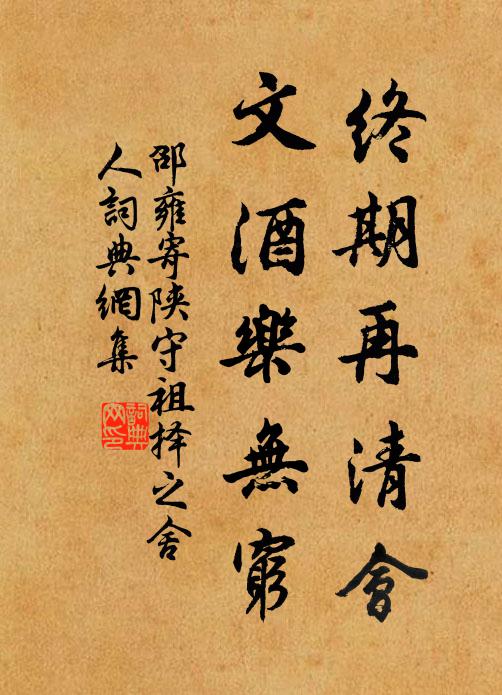 終期再清會
文酒樂無窮
邵雍寄陝守祖择之舍
人詞典網集
詞典網印